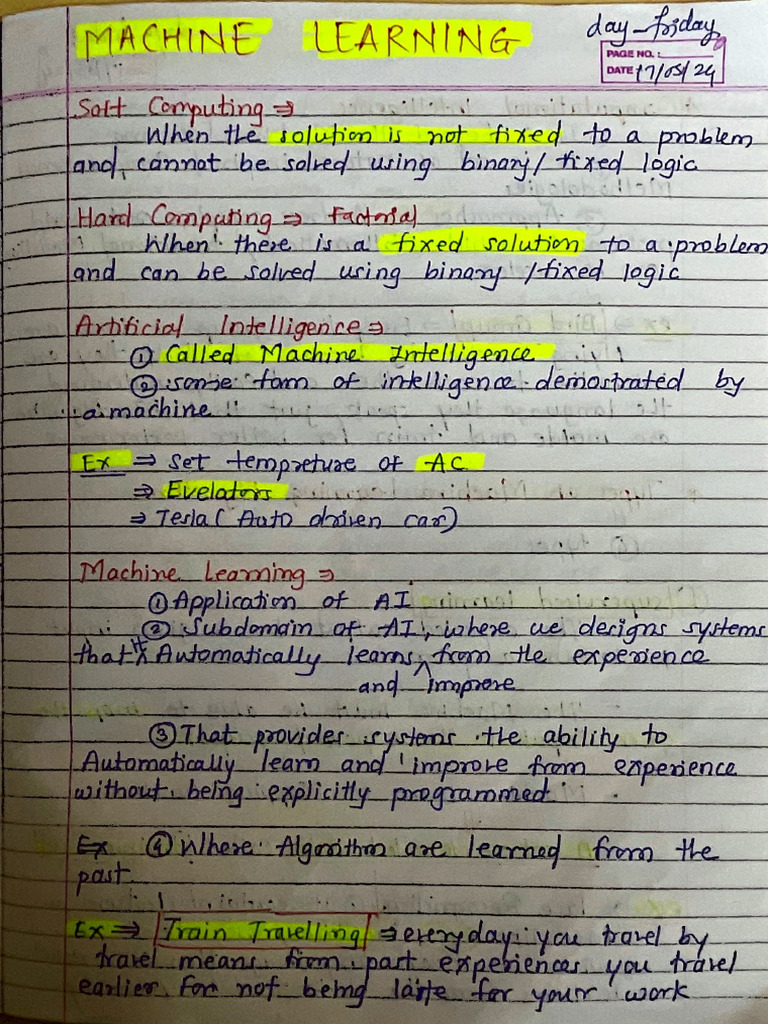 MACHINE LEARNING
day - friday
PAGE NO.:
DATE 17/05/24
Soft Computing ⇒
When the solution is not fixed to a problem
and cannot be solved using binary/ fixed logic
Hard Computing ⇒ factorial
When there is a fixed solution to a problem
and can be solved using binary /fixed logic
Artificial Intelligence ⇒
① Called Machine Intelligence
② some form of intelligence demostrated by
a machine
Ex ⇒ Set tempreture of AC
⇒ Evelators
⇒ Tesla ( Auto driven car)
Machine Learning ⇒
① Application of AI
② Subdomain of AI, where we designs systems
that Automatically learns from the experience
and improve
③ That provides systems the ability to
Automatically learn and improve from experience
without being explicitly programmed
Ex ④ Where Algorithm are learned from the
past
Ex ⇒ Train Travelling ⇒ everyday you travel by
travel means from past experiences you travel
earlier for not being late for your work